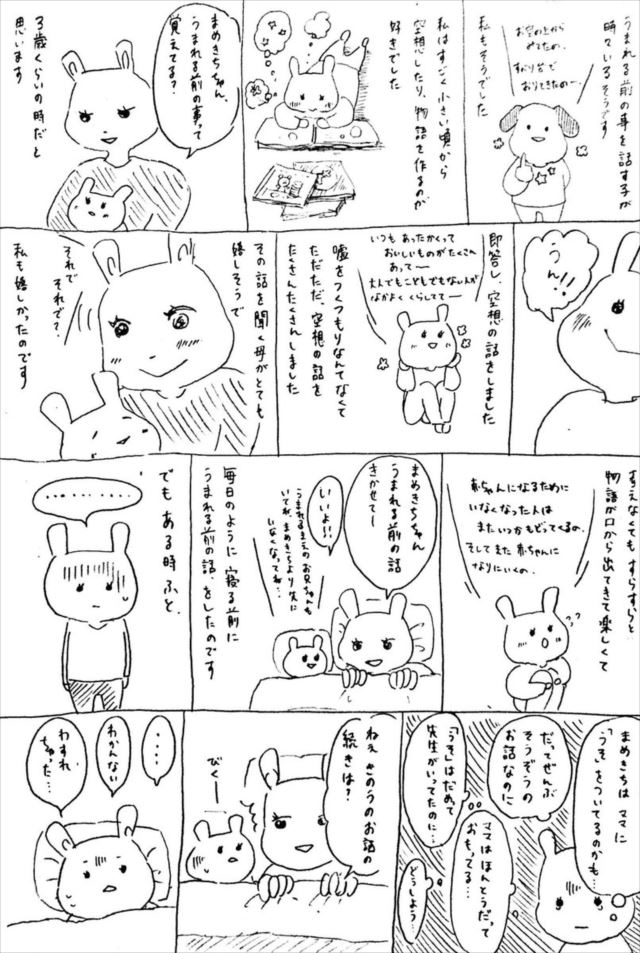 うまれる前の事を話す子が
時々いるそうです
お空の上から
みてたの。
すべり台で
おりてきたのー。
私もそうでした
私はすごく小さい頃から
空想したり、物語を作るのが
好きでした
まめきちちゃん、
うまれる前の事って
覚えてる?
3歳くらいの時だと
思います
うん!!
即答し、空想の話をしました
いつもあったかくって
おいしいものがたくさん
あってー
大人でもこどもでもない人が
なかよくくらしててー
嘘をつくつもりなんてなくて
ただただ、空想の話を
たくさんたくさんしました
その話を聞く母がとても
嬉しそうで
それで
それで?
私も嬉しかったのです
考えなくても、すらすらと
物語が口から出てきて楽しくて
赤ちゃんになるために
いなくなった人は
またいつかもどってくるの、
そしてまた赤ちゃんに
なりにいくの、
まめきちちゃん
うまれる前の話
きかせてー
いいよ!!
うまれるまえのお兄ちゃんも
いてね、まめきちより先に
いなくなってね…
毎日のように寝る前に
うまれる前の話、をしたのです
でもある時ふと、
・・・・・・・・・
まめきちは ママに
「うそ」をついてるのかも…
だってぜんぶ
そうぞうの
お話なのに
「うそ」はだめって
先生がいってたのに…
ママはほんとうだって
おもってる…
どうしよう…
ねぇ きのうのお話の
続きは?
びくー
・・・・
わかんない
わすれ
ちゃった…